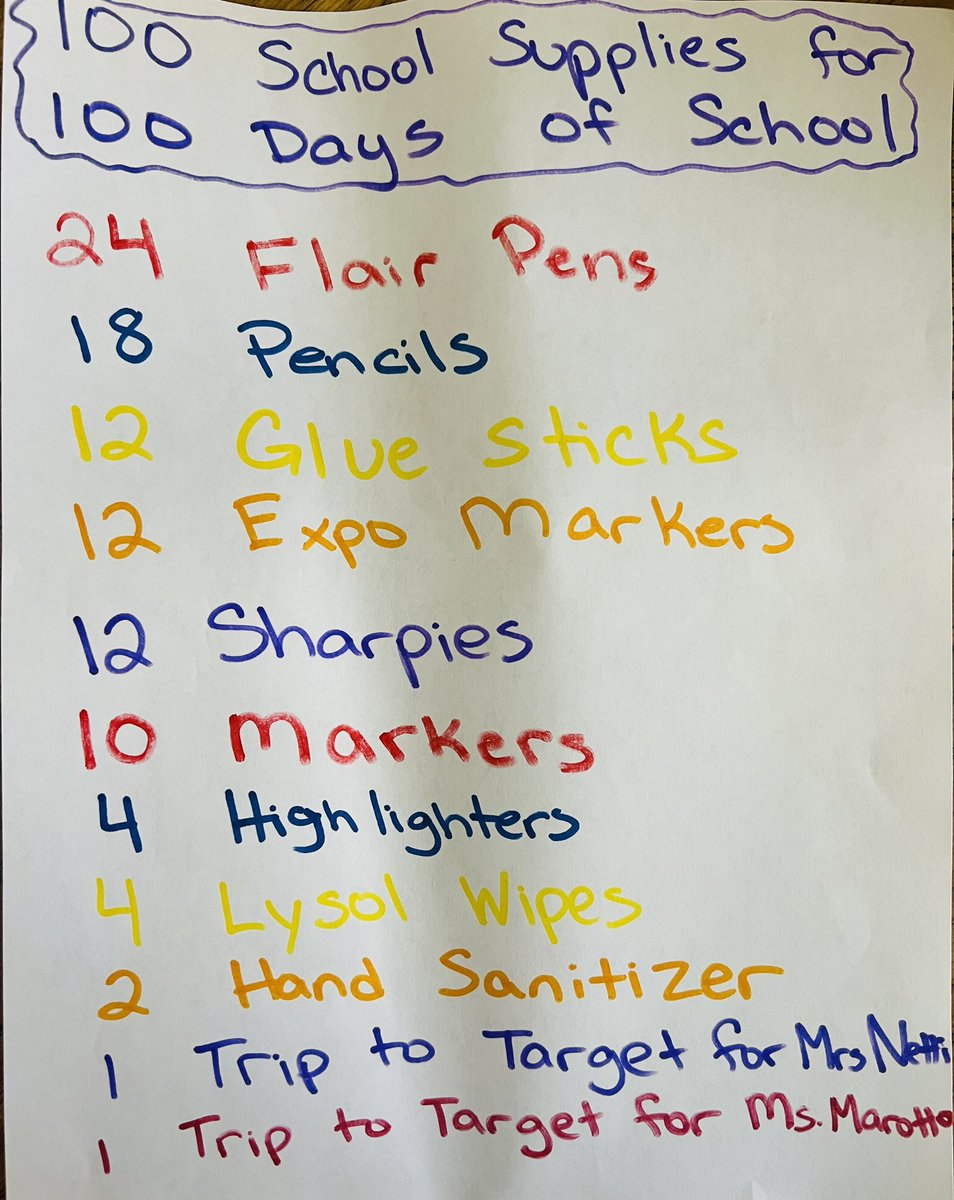 100 School Supplies for
100 Days of School
24 Flair Pens
18 Pencils
12 Glue sticks
12 Expo Markers
12 Sharpies
10 Markers
4 Highlighters
4 Lysol Wipes
2 Hand Sanitizer
1 Trip to Target for Mrs Netti
1 Trip to Target for Ms. Marotto